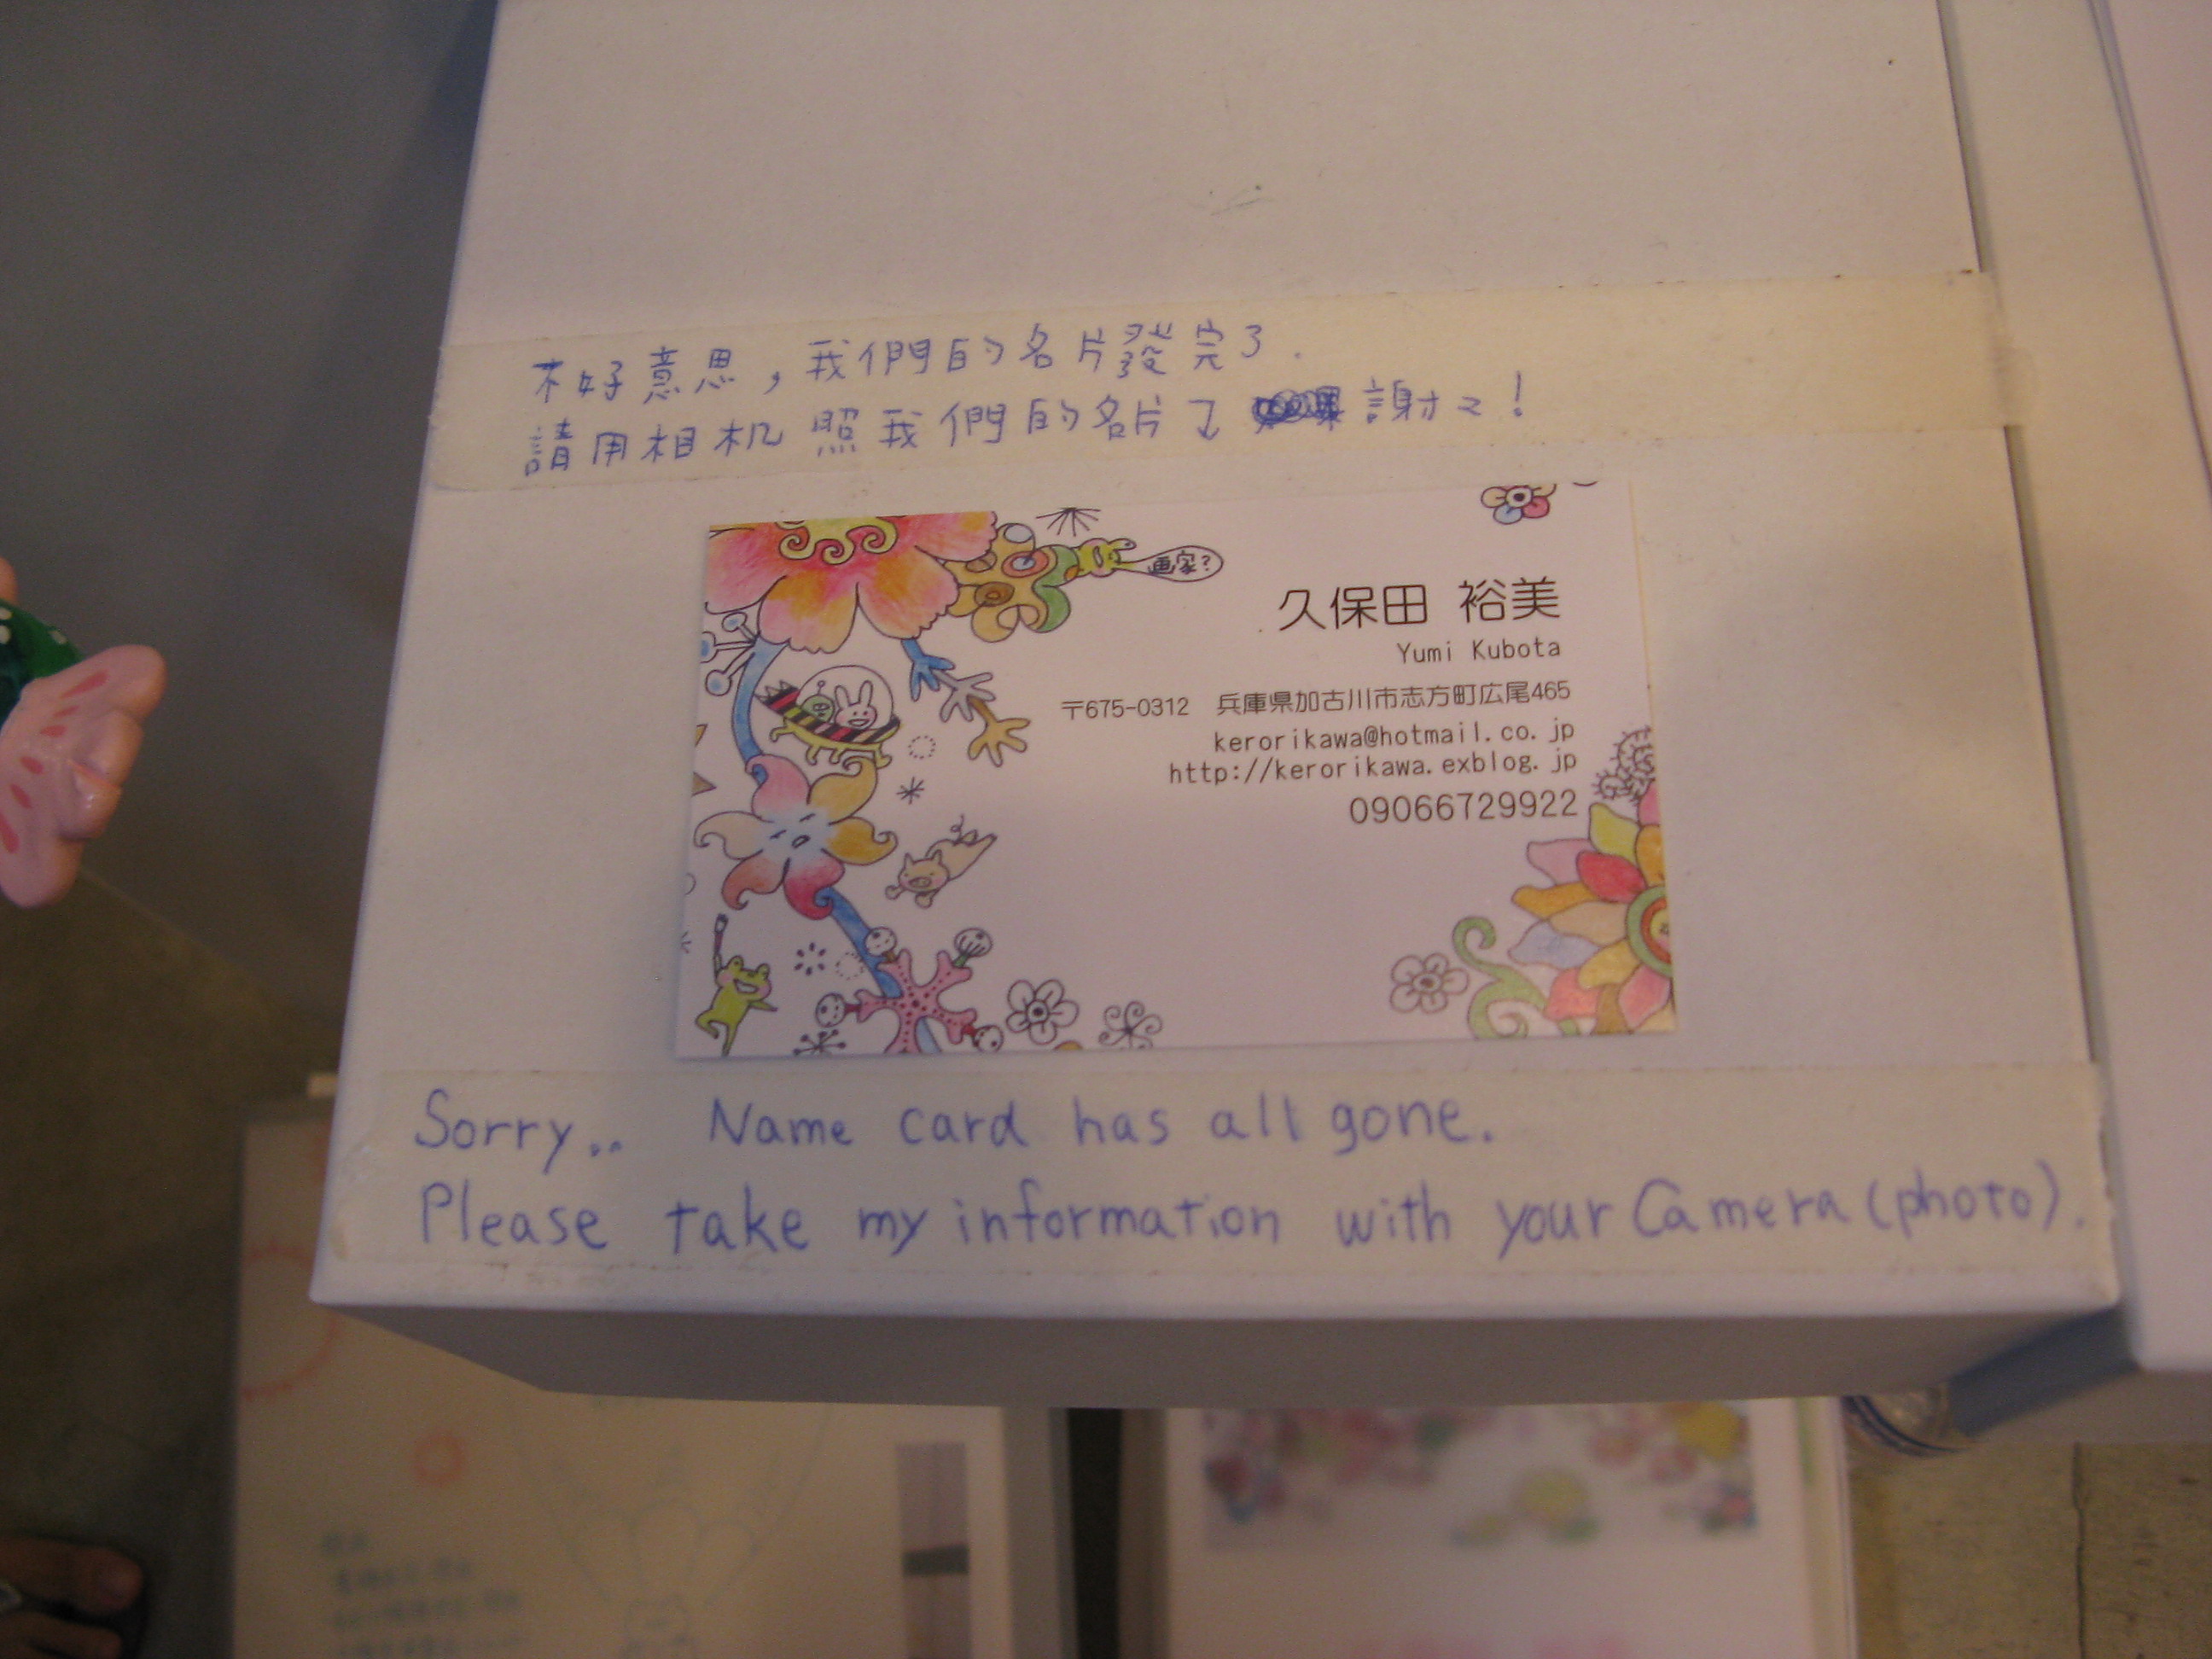 不好意思，我們的名片發完了.
請用相机照我們的名片了 謝々！
画家?
久保田 裕美
Yumi Kubota
〒675-0312 兵庫県加古川市志方町広尾465
kerorikawa@hotmail.co.jp
http://kerorikawa.exblog.jp
09066729922
Sorry.. Name card has all gone.
Please take my information with your Camera(photo).